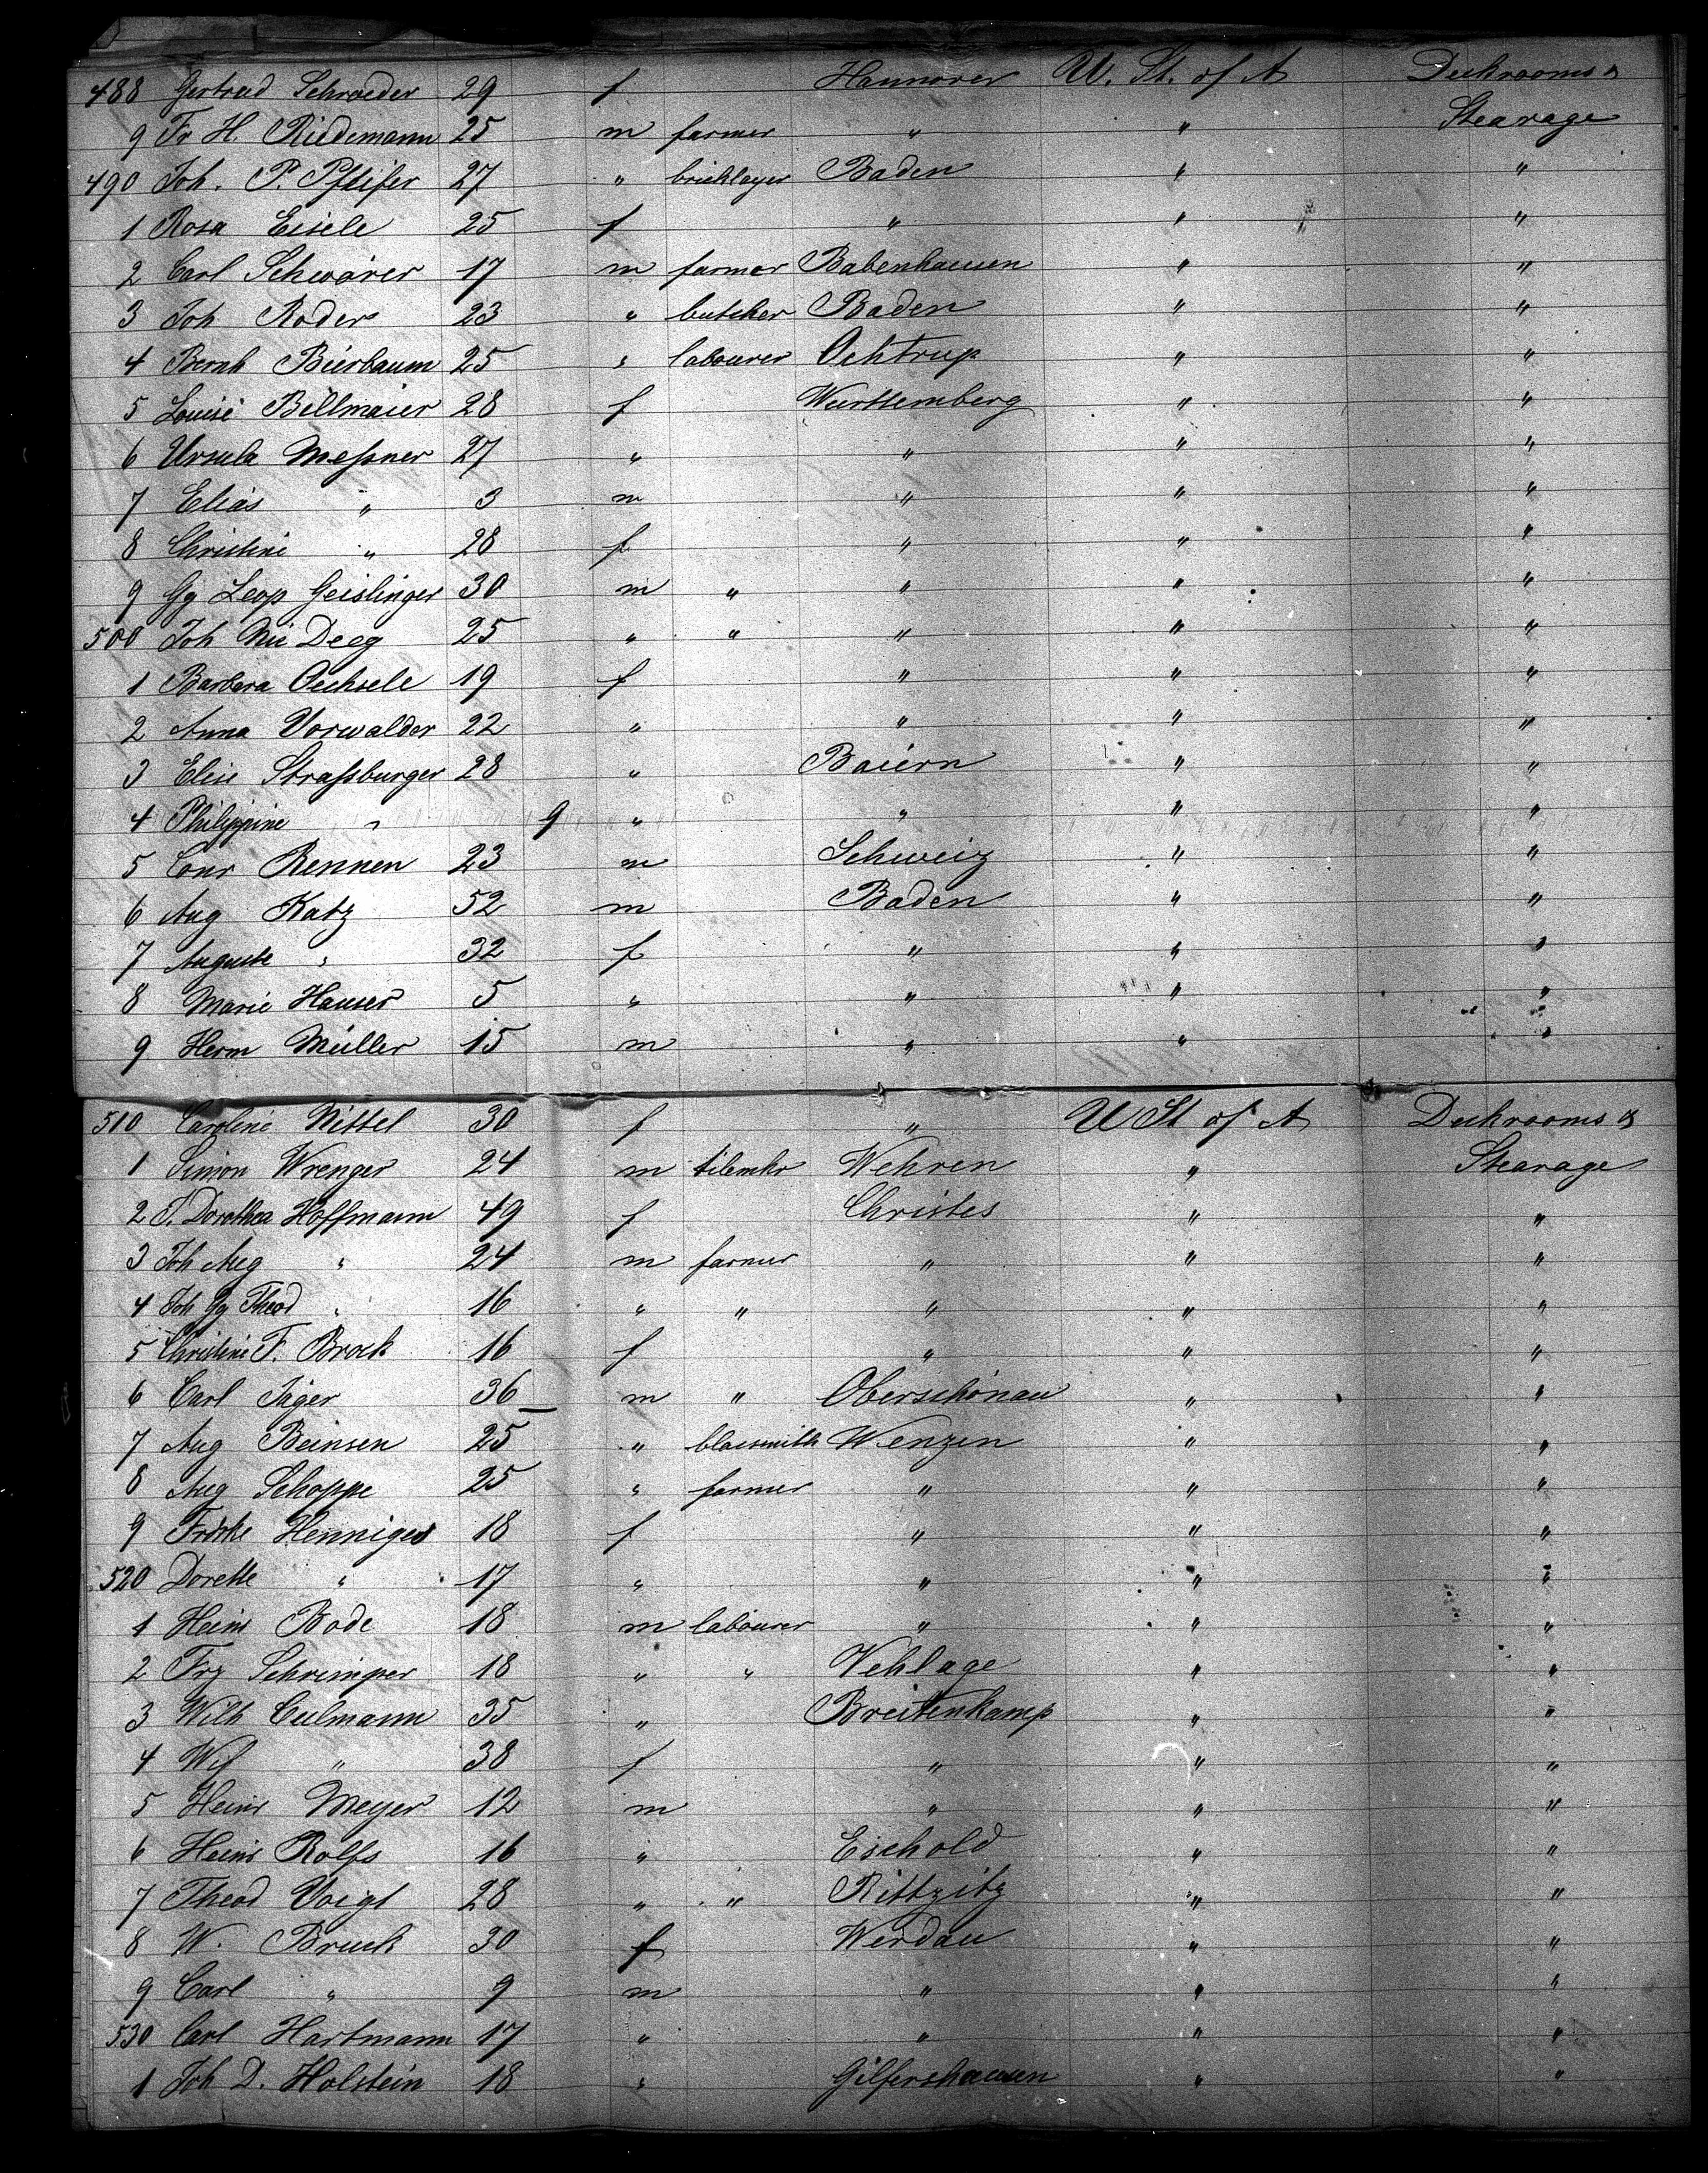 488 Gertrud Schroeder 29 f Hannover U. St. of A Deckrooms &
9 Fr H. Riedemann 25 m farmer " " Stearage
490 Joh. P. Pfeifer 27 " bricklayer Baden " "
1 Rosa Eisele 25 f " " "
2 Carl Schwörer 17 m farmer Babenhausen " "
3 Joh Roder 23 " butcher Baden " "
4 Bernh Bierbaum 25 " labourer Ochtrup " "
5 Louise Billmaier 28 f Wurttemberg " "
6 Ursula Meßner 27 " " " "
7 Elias " 3 m " " "
8 Christine " 28 f " " "
9 Gg Leop Geislinger 30 m " " " "
500 Joh Nic Deeg 25 " " " " "
1 Barbara Oechsele 19 f " " "
2 Anna Vorwalder 22 " " " "
3 Elise Straßburger 28 " Baiern " "
4 Philippine " 9 " " " "
5 Conr Rennen 23 m Schweiz " "
6 Aug Katz 52 m Baden " "
7 Auguste " 32 f " " "
8 Marie Hauser 5 " " " "
9 Herm Müller 15 m " " "
510 Caroline Nittel 30 f " U St of A Deckrooms &
1 Simon Wrenger 24 m tilemkr Wehren " Stearage
2 T. Dorothea Hoffmann 49 f Christes " "
3 Joh Aug " 24 m farmer " " "
4 Joh Gg Theod " 16 " " " " "
5 Christine F. Brock 16 f " " "
6 Carl Jäger 36 m " Oberschönau " "
7 Aug Beinsen 25 " blacsmith Wenzen " "
8 Aug Schoppe 25 " farmer " " "
9 Fridke Henniges 18 f " " "
520 Dorette " 17 " " " "
1 Heinr Bode 18 m labourer " " "
2 Frz Schrimper 18 " " Vehlage " "
3 Wilh Culmann 35 " Breitenkamp " "
4 Wf " 38 f " " "
5 Heinr Meyer 12 m " " "
6 Heinr Rolfs 16 " Eschold " "
7 Theod Voigt 28 " " Rittzitz " "
8 W. Bruck 30 f Werdau " "
9 Carl " 9 m " " "
530 Carl Hartmann 17 " " " "
1 Joh D. Holstein 18 " Gilfershausen " "